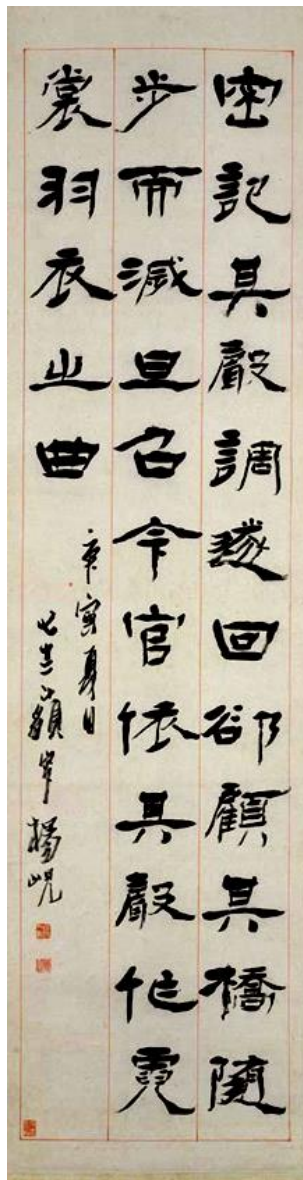 密記其聲調遂回卻顧其橋隨
步而滅旦召令官依其聲作霓
裳羽衣之曲
庚寅夏日
楊峴